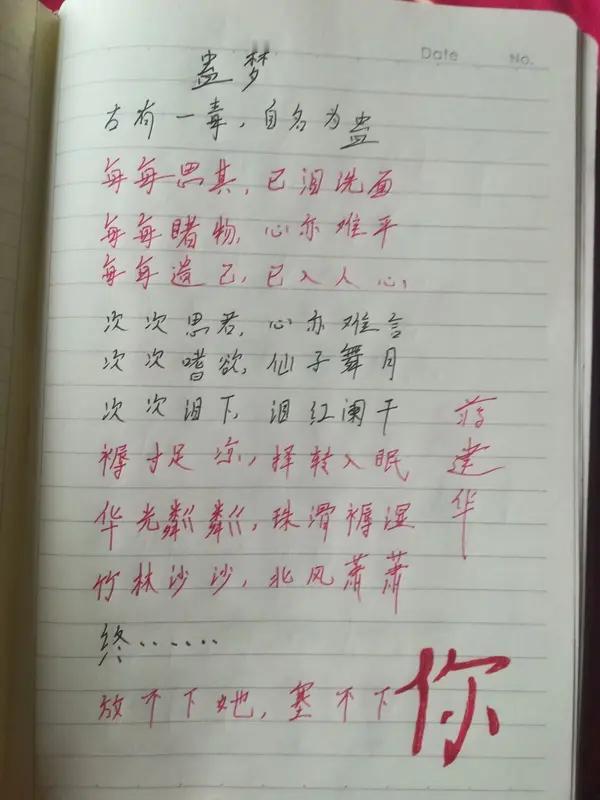 Date No.
蛊梦
古有一毒，自名为蛊
每每思其，已泪洗面
每每睹物，心亦难平
每每遗己，已入人心，
次次思君，心亦难言
次次嗜欲，仙子舞月
次次泪下，泪红阑干
褥寸足凉，择转入眠
华光粼粼，珠滑褥湿
竹林沙沙，北风萧萧
终……
放不下她，塞不下你
蒋建华